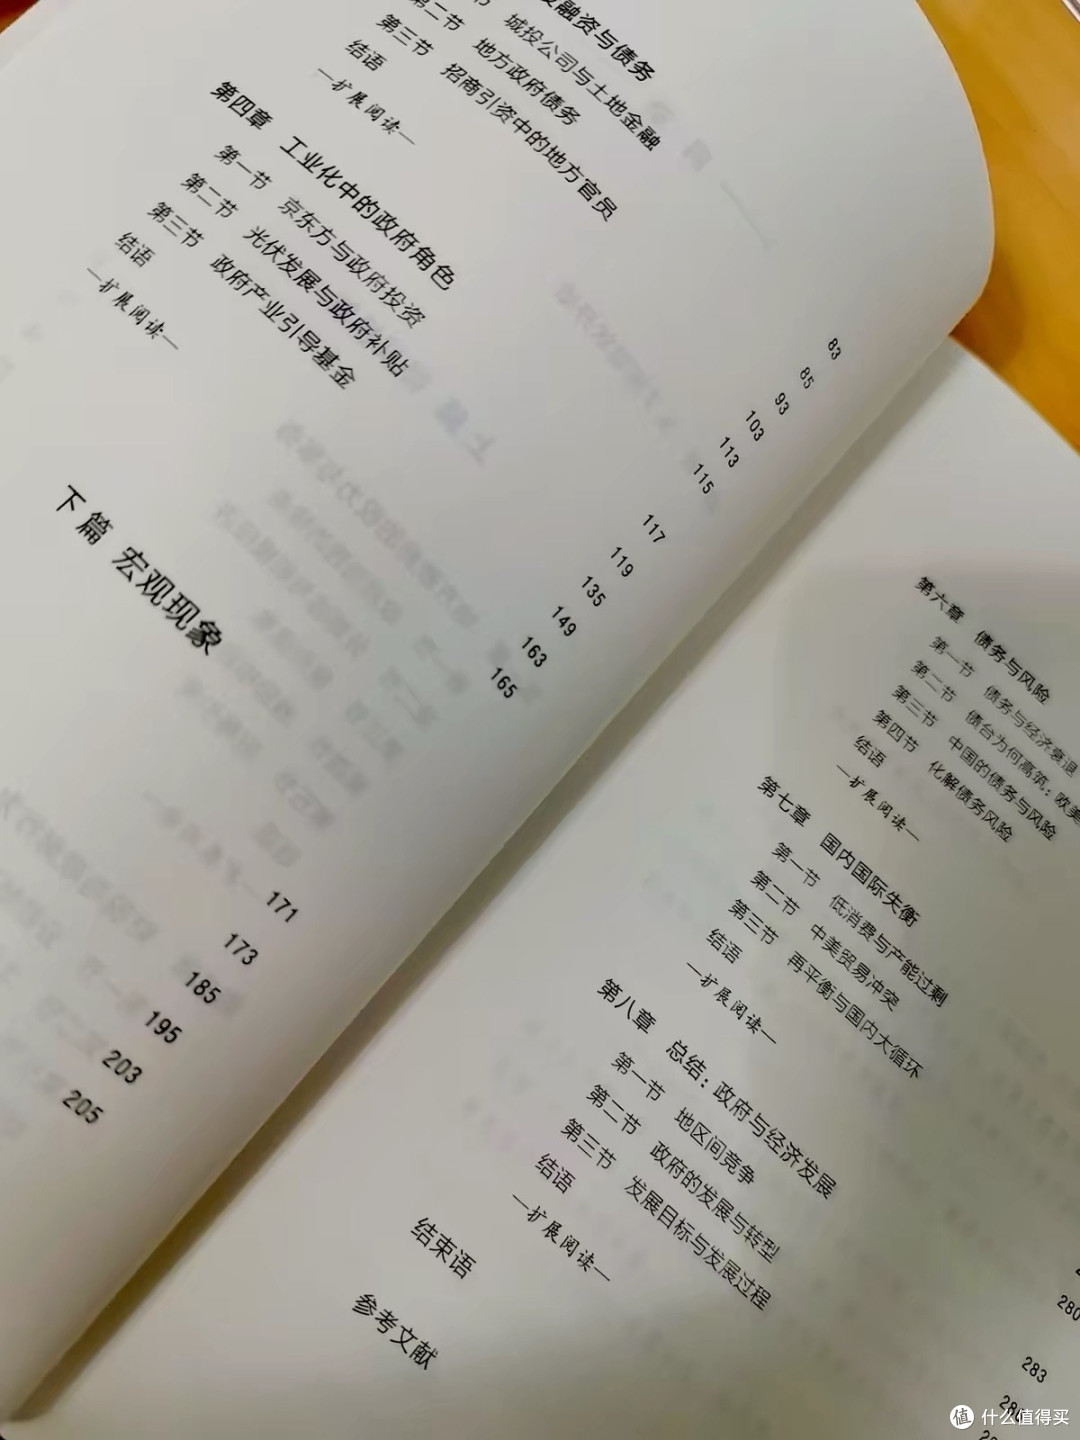 融资与债务
第一节 城投公司与土地金融
第二节 地方政府债务
第三节 招商引资中的地方官员
结语
—扩展阅读—
第四章 工业化中的政府角色
第一节 京东方与政府投资
第二节 光伏发展与政府补贴
第三节 政府产业引导基金
结语
—扩展阅读—
下篇 宏观现象
83
85
93
103
113
115
117
119
135
149
163
165
171
173
185
195
203
205
第六章 债务与风险
第一节 债务与经济衰退
第二节 债台为何高筑：欧美
第三节 中国的债务与风险
第四节 化解债务风险
结语
—扩展阅读—
第七章 国内国际失衡
第一节 低消费与产能过剩
第二节 中美贸易冲突
第三节 再平衡与国内大循环
结语
—扩展阅读—
第八章 总结：政府与经济发展
第一节 地区间竞争
第二节 政府的发展与转型
第三节 发展目标与发展过程
结语
—扩展阅读—
结束语
参考文献
280
283
值 什么值得买